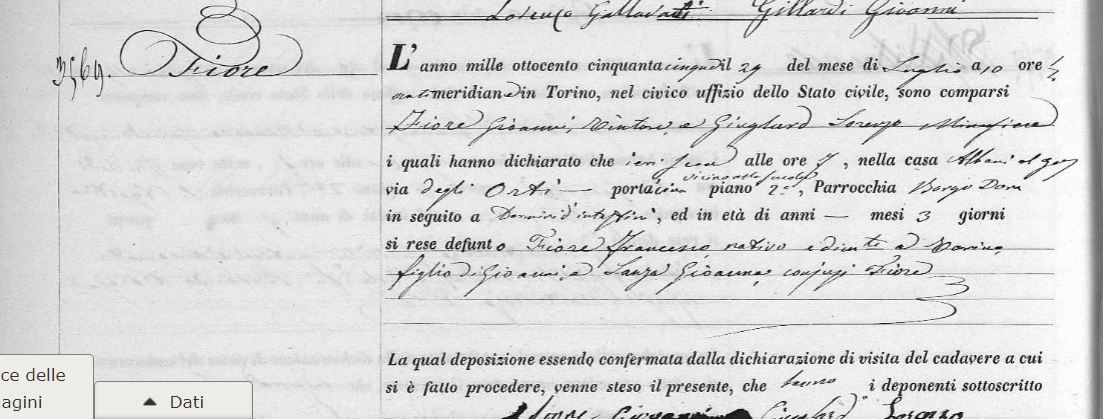 Lorenzo Gillardi Gioanni
3569. Fiore
L'anno mille ottocento cinquantacinque il 29 del mese di Luglio a 10 ore ½
antimeridiane in Torino, nel civico uffizio dello Stato civile, sono comparsi
Fiore Gioanni, Tintore, e Giuglard Lorenzo
i quali hanno dichiarato che ieri sera alle ore 7, nella casa Albani al
vicino alle
via degli Orti — porta piano 2°, Parrocchia Borgo Dora
in seguito a d'intestini, ed in età di anni — mesi 3 giorni
si rese defunto Fiore Francesco nativo e dim.te a Torino
figlio di Gioanni, e Gioanna, conjugi Fiore
La qual deposizione essendo confermata dalla dichiarazione di visita del cadavere a cui
si è fatto procedere, venne steso il presente, che hanno i deponenti sottoscritto
Fiore Giovanni Giuglard Lorenzo
ce delle
agini
▲ Dati